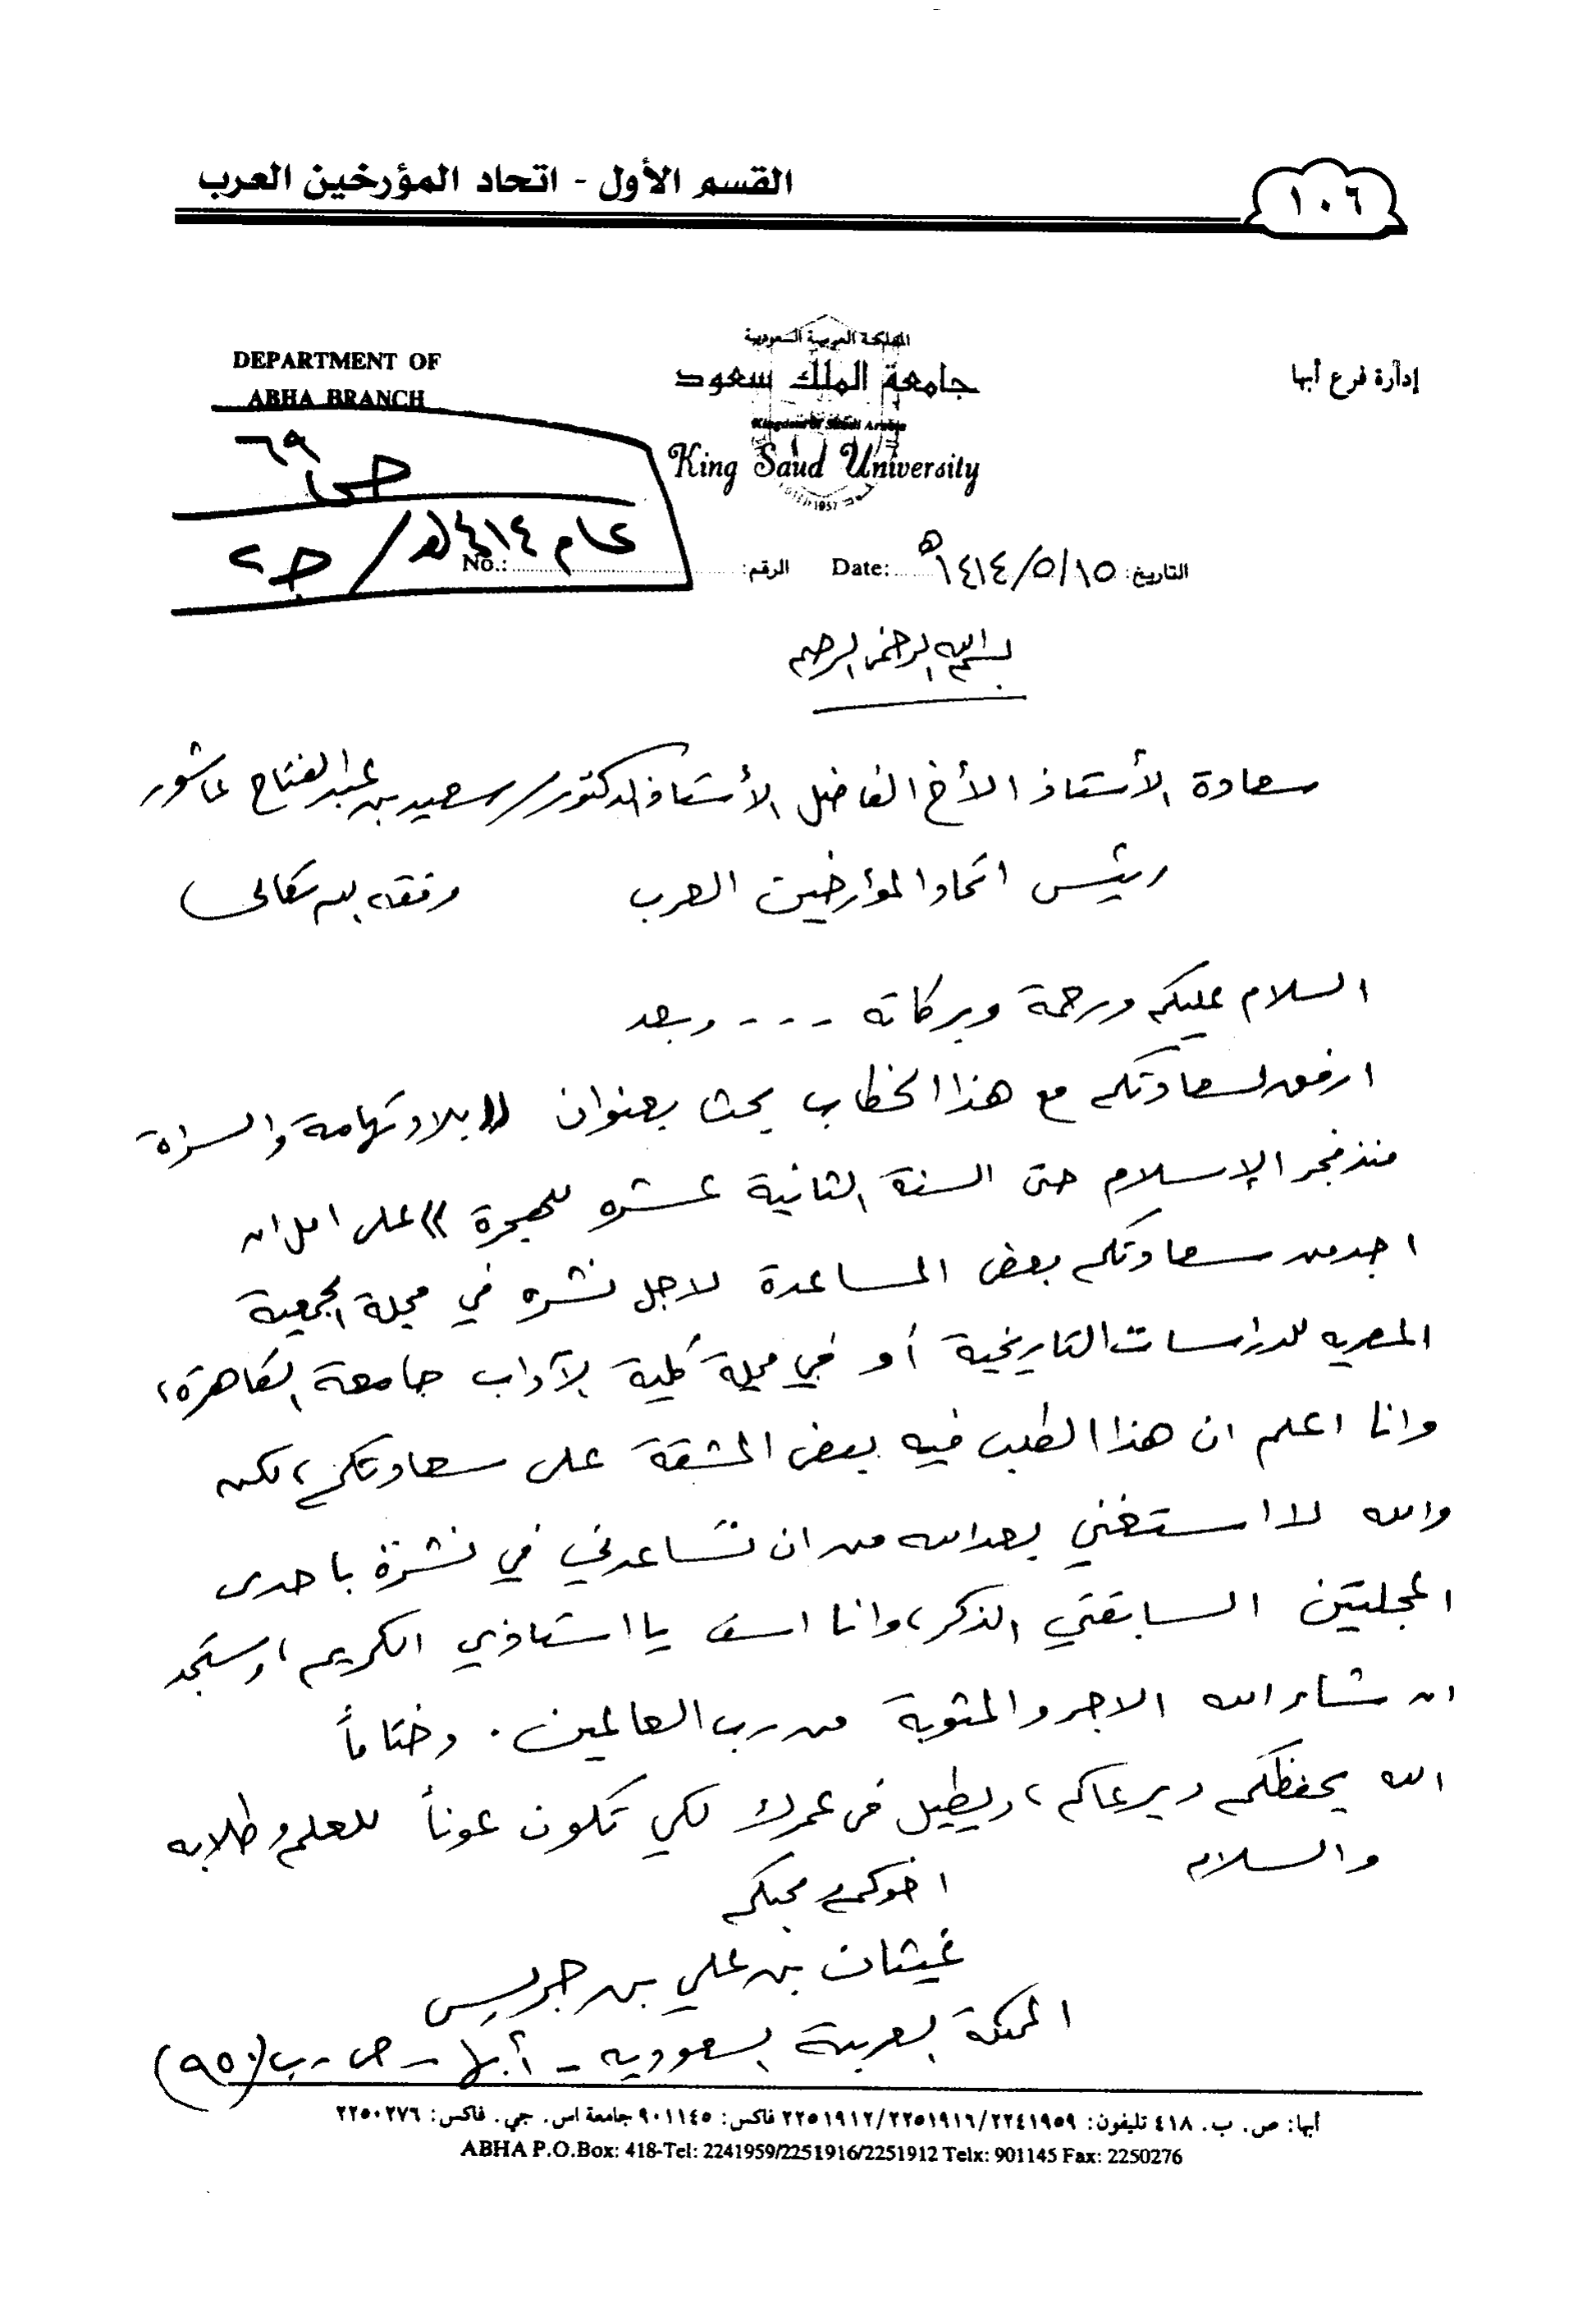 القسم الأول - اتحاد المؤرخين العرب
١٠٦
إدارة فرع أبها
المملكة العربية السعودية
جامعة الملك سعود
Kingdom of Saudi Arabia
King Saud University
1957
DEPARTMENT OF
ABHA BRANCH
ص ٦٩
عام ١٤١٤هـ / ج٢
التاريخ: ١٤١٤/٥/١٥هـ Date: الرقم: No.:
بسم الله الرحمن الرحيم
سعادة الأستاذ الأخ الفاضل الأستاذ الدكتور / سعيد بن عبدالفتاح عاشور
رئيس اتحاد المؤرخين العرب وفقه الله تعالى
السلام عليكم ورحمة وبركاته - - - وبعد
ارفق لسعادتكم مع هذا الخطاب بحث بعنوان (( بلاد تهامة والسراة
منذ فجر الإسلام حتى السنة الثانية عشره للهجرة )) على امل ان
اجد من سعادتكم بعض المساعدة لاجل نشره في مجلة الجمعية
المصريه للدراسات التاريخية أو في مجلة كلية الآداب جامعة القاهرة،
وانا اعلم ان هذا الطلب فيه بعض المشقة على سعادتكم، لكن
والله لا استغني بعد الله من ان تساعدني في نشرة باحدى
المجلتين السابقتي الذكر، وانا اسف يا استاذي الكريم، وستجد
ان شاء الله الاجر والمثوبة من رب العالمين. وختاماً
الله يحفظكم ويرعاكم، ويطيل في عمرك لكي تكون عوناً للعلم وطلابه
والسلام
اخوكم ومحبكم
غيثان بن علي بن جريس
المملكة العربية السعوديه - أبها - ص.ب (٩٥٠)
أبها: ص. ب. ٤١٨ تليفون: ٢٢٥١٩١٢/٢٢٥١٩١٦/٢٢٤١٩٥٩ فاكس: ٩٠١١٤٥ جامعة اس. جي. فاكس: ٢٢٥٠٢٧٦
ABHA P.O.Box: 418-Tel: 2241959/2251916/2251912 Telx: 901145 Fax: 2250276